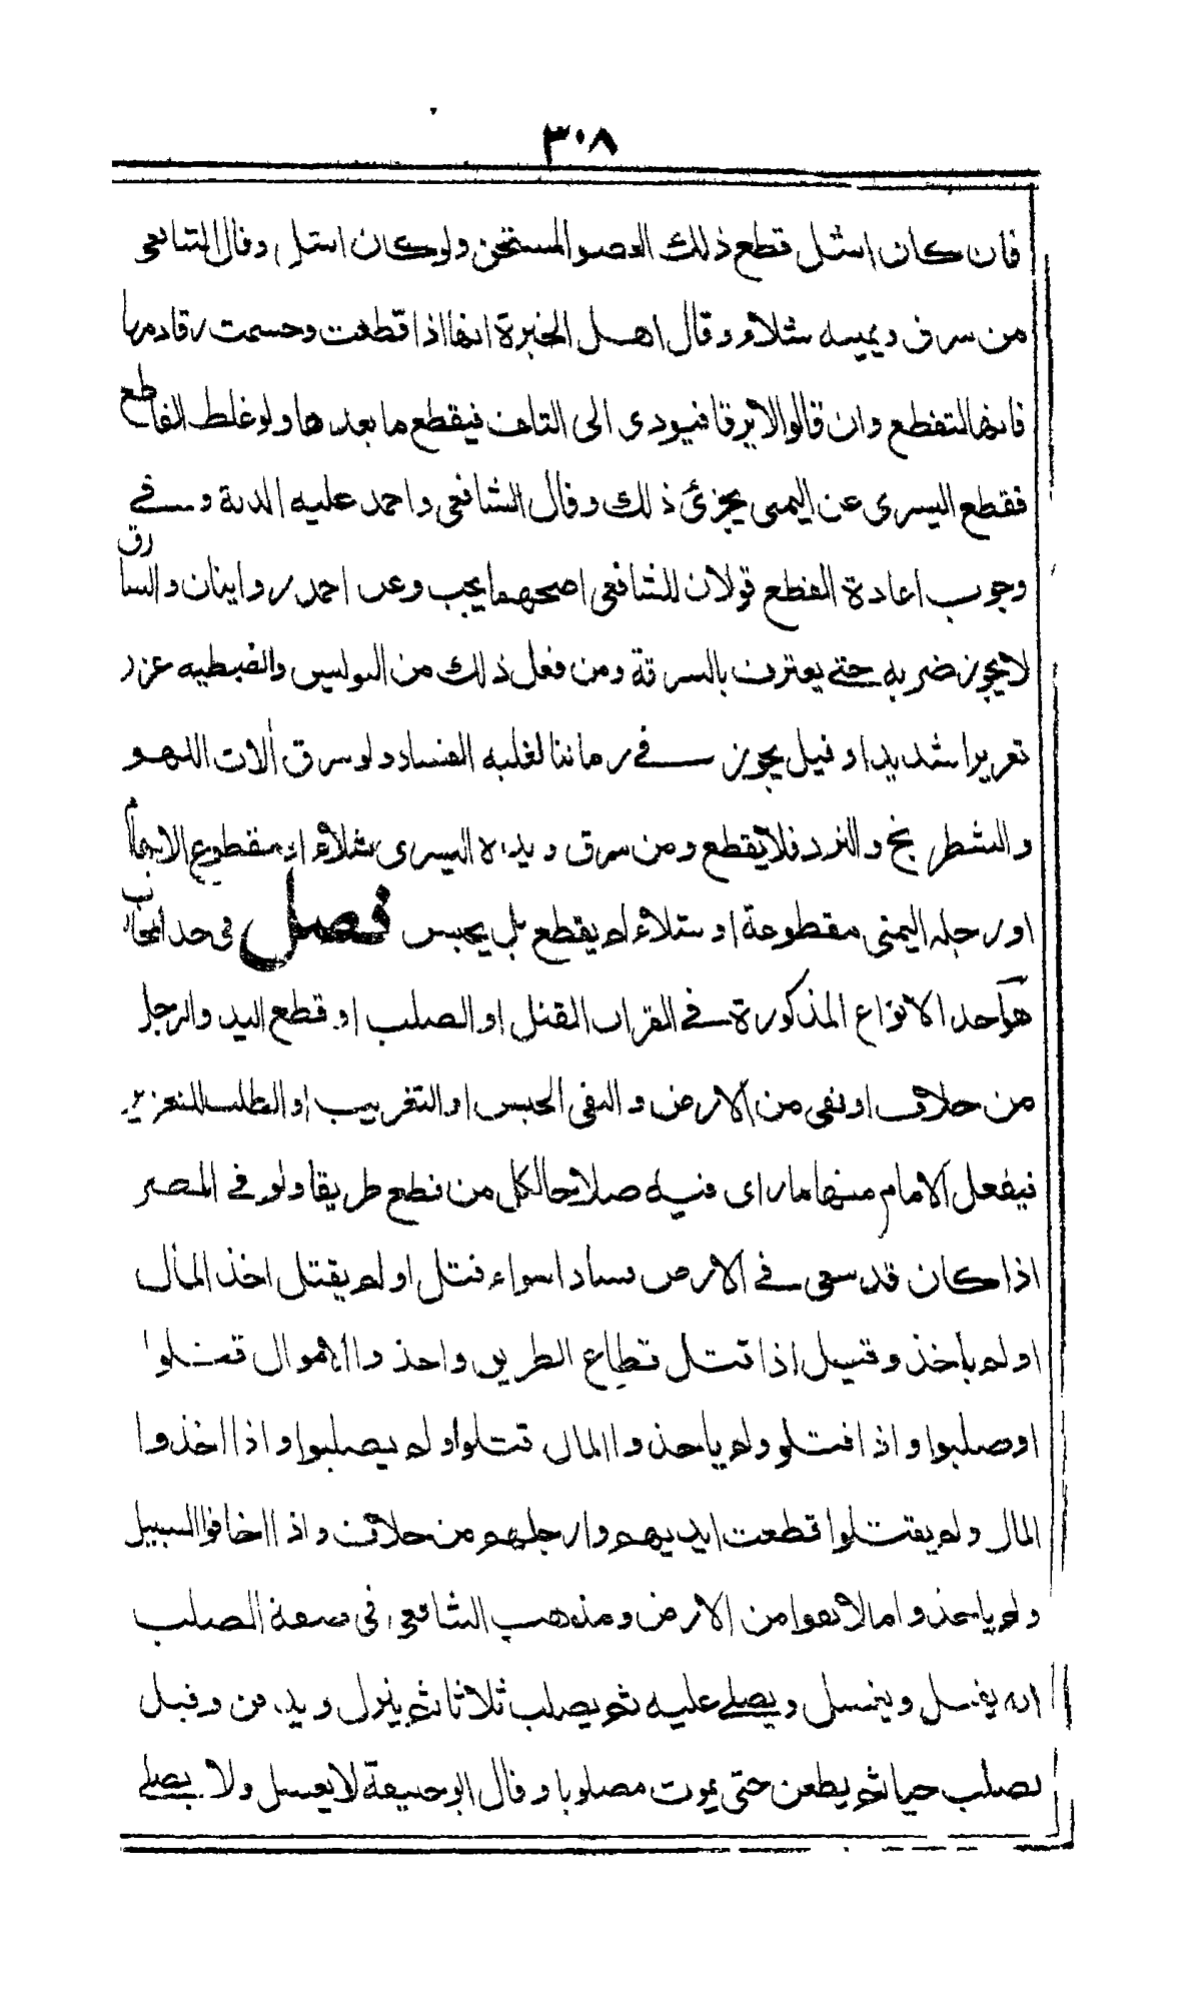 ٣٠٨
فان كان اشل قطع ذلك العضو المستحق ولو كان اشل وقال الشافعي
من سرق ويمينه شلاء وقال اهل الخبرة انها اذا قطعت وحسمت رقا دمها
فانها تقطع وان قالوا لا يرقا فيودى الى التلف فيقطع ما بعدها ولو غلط القاطع
فقطع اليسرى عن اليمنى يجزئ ذلك وقال الشافعي واحمد عليه الدية وفي
وجوب اعادة القطع قولان للشافعي اصحهما يجب وعن احمد روايتان والسارق
لا يجوز ضربه حتى يعترف بالسرقة ومن فعل ذلك من البوليس والضبطيه عزر
تعزيرا شديدا وقيل يجوز في زماننا لغلبه الفساد ولو سرق الات اللهو
والشطرنج والنرد فلا يقطع ومن سرق ويده اليسرى شلاء او مقطوع الابهام
او رجله اليمنى مقطوعة او شلاء لم يقطع بل يحبس فصل في حد المحارب
هو احد الانواع المذكورة في القران القتل او الصلب او قطع اليد والرجل
من خلاف او نفي من الارض والنفى الحبس او التغريب او الطلب للتعزير
فيفعل الامام منها ما راى فيه صلاحا لكل من قطع طريقا ولو في المصر
اذا كان قد سعى في الارض فسادا سواء قتل او لم يقتل اخذ المال
او لم ياخذ وقيل اذا قتل قطاع الطريق واخذوا الاموال قتلوا
او صلبوا واذا قتلو ولم ياخذوا المال قتلوا ولم يصلبوا واذا اخذوا
المال ولم يقتلوا قطعت ايديهم وارجلهم من خلاف واذا اخافوا السبيل
ولم ياخذوا مالا نفوا من الارض ومذهب الشافعي في صفة الصلب
انه يقتل ويغسل ويصلى عليه ثم يصلب ثلاثا ثم ينزل ويدفن وقيل
يصلب حيا ثم يطعن حتى يموت مصلوبا وقال ابو حنيفة لا يغسل ولا يصلى